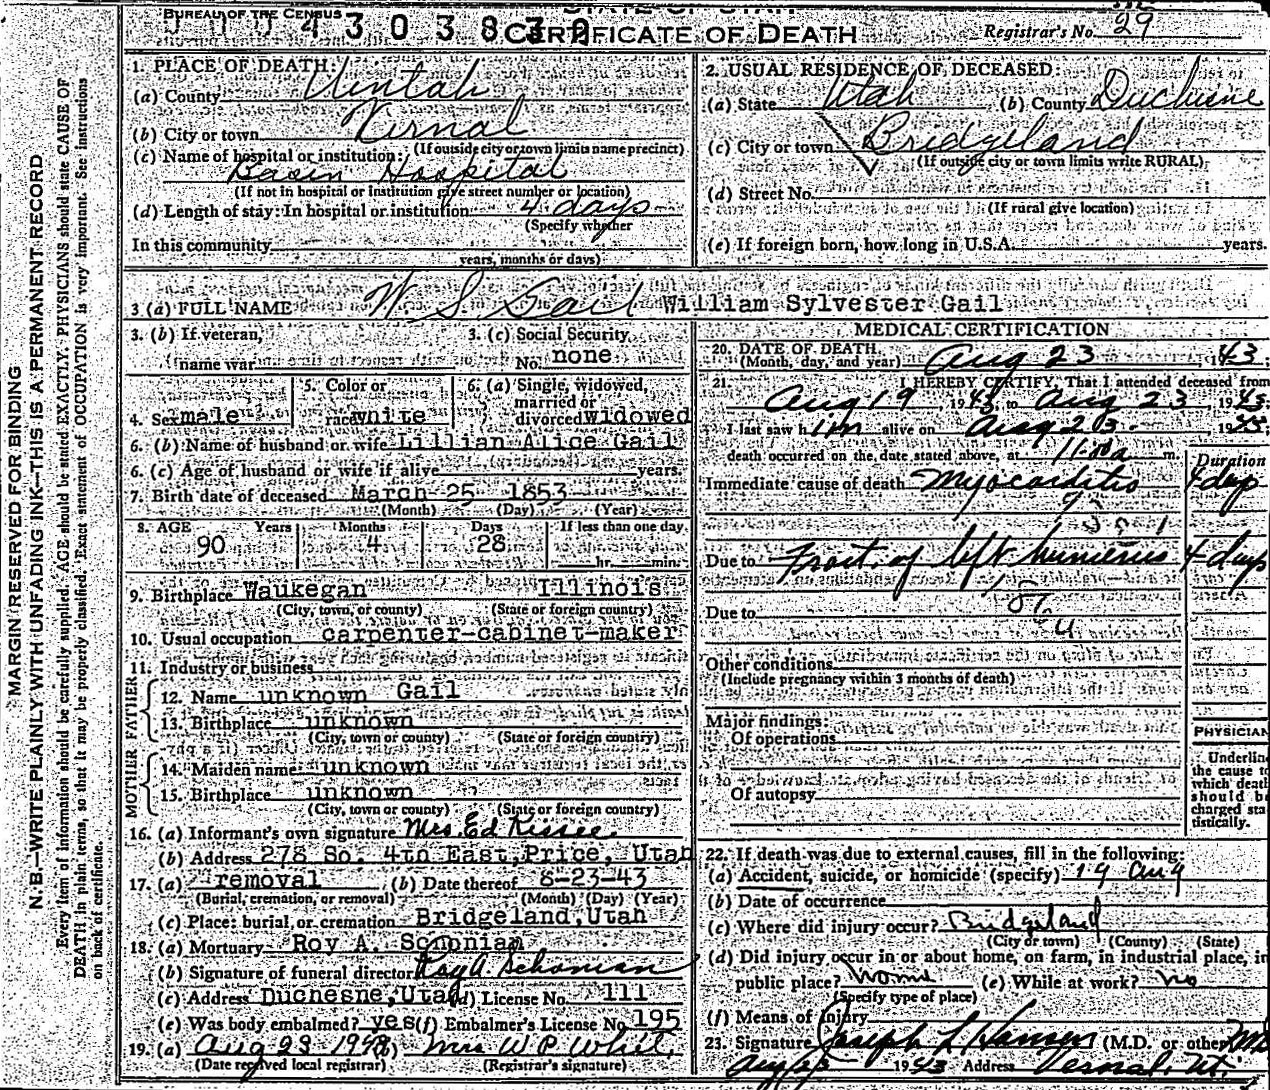 BUREAU OF THE CENSUS
STATE OF UTAH
CERTIFICATE OF DEATH
Registrar's No. 29
MARGIN RESERVED FOR BINDING
N. B.—WRITE PLAINLY WITH UNFADING INK—THIS IS A PERMANENT RECORD
Every item of information should be carefully supplied. AGE should be stated EXACTLY. PHYSICIANS should state CAUSE OF
DEATH in plain terms, so that it may be properly classified. Exact statement of OCCUPATION is very important. See instructions
on back of certificate.
1. PLACE OF DEATH:
(a) County Uintah
(b) City or town Virnal
(If outside city or town limits name precinct)
(c) Name of hospital or institution:
Basin Hospital
(If not in hospital or institution give street number or location)
(d) Length of stay: In hospital or institution 4 days
(Specify whether
In this community
years, months or days)
2. USUAL RESIDENCE OF DECEASED:
(a) State Utah (b) County Duchesne
(c) City or town Bridgeland
(If outside city or town limits write RURAL)
(d) Street No.
(If rural give location)
(e) If foreign born, how long in U.S.A. years.
3 (a) FULL NAME W. S. Gail William Sylvester Gail
3. (b) If veteran,
name war
3. (c) Social Security
No. none
4. Sex male
5. Color or
race white
6. (a) Single, widowed,
married or
divorced widowed
6. (b) Name of husband or wife Lillian Alice Gail
6. (c) Age of husband or wife if alive years.
7. Birth date of deceased March 25 1853
(Month) (Day) (Year)
8. AGE Years Months Days If less than one day
90 4 28 hr. min.
9. Birthplace Waukegan Illinois
(City, town, or county) (State or foreign country)
10. Usual occupation carpenter-cabinet-maker
11. Industry or business
FATHER
12. Name unknown Gail
13. Birthplace unknown
(City, town, or county) (State or foreign country)
MOTHER
14. Maiden name unknown
15. Birthplace unknown
(City, town or county) (State or foreign country)
16. (a) Informant's own signature Mrs. Ed
(b) Address 278 So. 4th East, Price, Utah
17. (a) removal (b) Date thereof 8-23-43
(Burial, cremation, or removal) (Month) (Day) (Year)
(c) Place: burial or cremation Bridgeland, Utah
18. (a) Mortuary Roy A. Schonian
(b) Signature of funeral director Roy A. Schonian
(c) Address Duchesne, Utah (d) License No. 111
(e) Was body embalmed? yes (f) Embalmer's License No. 195
19. (a) Aug 23 1943 (b) Mrs W P
(Date received local registrar) (Registrar's signature)
MEDICAL CERTIFICATION
20. DATE OF DEATH
(Month, day, and year) Aug 23, 1943;
21. I HEREBY CERTIFY, That I attended deceased from
Aug 19, 1943, to Aug 23, 1943;
I last saw him alive on Aug 23, 1943;
death occurred on the date stated above, at 11:00a m.
Duration
Immediate cause of death Myocarditis 4 days
Due to Fract. of left humerus 4 days
Due to
Other conditions
(Include pregnancy within 3 months of death)
Major findings:
Of operations
Of autopsy
PHYSICIAN
Underline
the cause to
which death
should be
charged sta
tistically.
22. If death was due to external causes, fill in the following:
(a) Accident, suicide, or homicide (specify) 19 Aug
(b) Date of occurrence
(c) Where did injury occur? Bridgeland
(City or town) (County) (State)
(d) Did injury occur in or about home, on farm, in industrial place, in
public place? home (e) While at work? no
(Specify type of place)
(f) Means of Injury
23. Signature Joseph L Hansen (M.D. or other) MD
Aug 25 1943 Address Vernal, Ut.